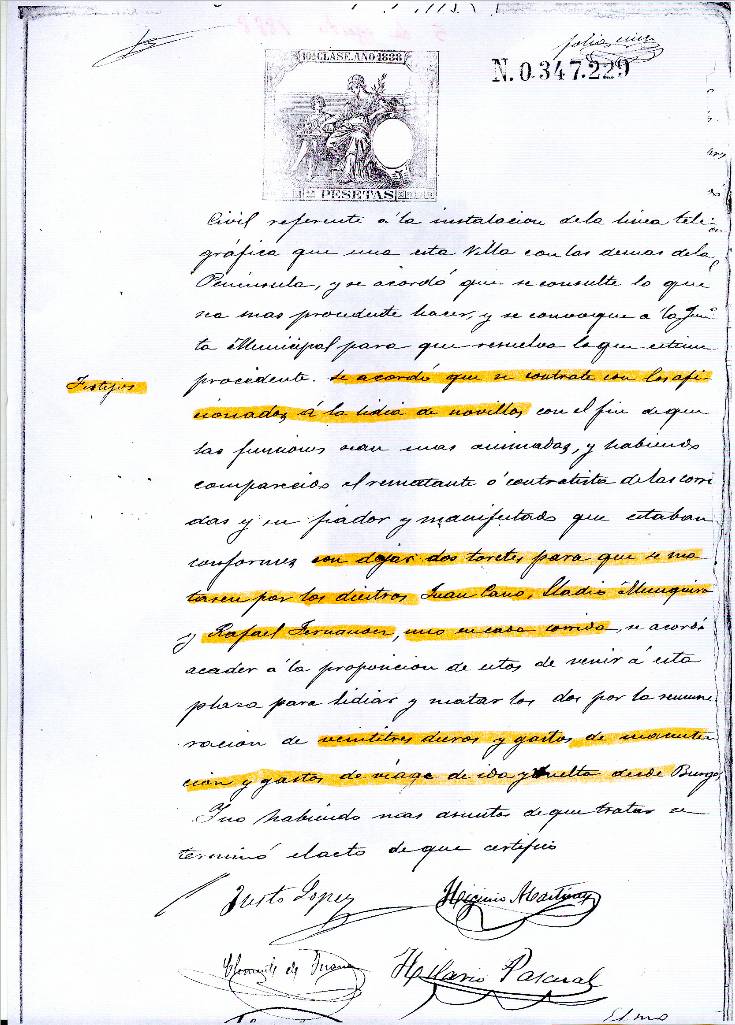 10ª CLASE. AÑO 1888
N. 0.347.229
2 PESETAS
Civil referente á la instalacion de la linea tele-
gráfica que una esta Villa con las demas de la
Península, y se acordó que se consulte lo que
sea mas procedente hacer, y se convoque a la Jun-
ta Municipal para que resuelva lo que estime
procedente. Se acordó que se contrate con los afi-
Festejos
cionados á la lidia de novillos con el fin de que
las funciones sean mas animadas, y habiendo
comparecido el rematante ó contratista de las corri
das y su fiador y manifestado que estaban
conformes con dejar dos toretes para que se ma
tasen por los diestros Juan Cano, Eladio Munguira
y Rafael Fernandez, uno en cada corrida, se acordó
acceder á la proposicion de estos de venir á esta
plaza para lidiar y matar los dos por la remune
ración de veintitres duros y gastos de manuten
cion y gastos de viage de ida y vuelta desde Burgos,
Y no habiendo mas asuntos de que tratar se
terminó el acto de que certifico
Justo Lopez
Higinio Martinez
Clemente de
Hilario Pascual